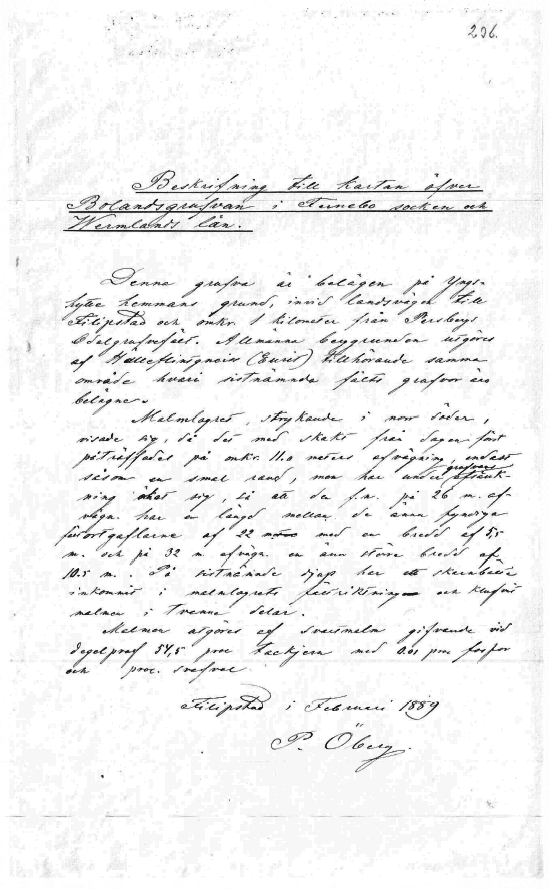 236.
Beskrifning till kartan öfver
Bolandsgrufvan i Fernebo socken och
Wermlands län.
Denna grufva är belägen på Yngs-
hytte hemmans grund, invid landsvägen till
Filipstad och omkr. 1 kilometer från Persbergs
Odalgrufvefält. Allmänna berggrunden utgöres
af Hälleflintgneis (Eurit) tillhörande samma
område hvari sistnämnda fälts grufvor äro
belägne.
Malmlagret, strykande i norr söder,
visade sig, då det med skakt från dagen först
påträffades på omkr. 11.0 meters afvägning, endast
såsom en smal rand, men har under grufvans afsänk-
ning ökat sig, så att den f.n. på 26 m. af-
vägn. har en längd mellan de ännu fyndiga
fältortgaflarne af 22 med en bredd af 5,5
m. och på 32 m. afvägn. en ännu större bredd af
10.5 m. På sistnämnde djup har ett skarnbälte
inkommit i malmlagrets fältriktning och klufvit
malmen i tvenne delar.
Malmen utgöres af svartmalm gifvande vid
degelprof 54,5 proc tackjern med 0.01 proc fosfor
och proc. svafvel.
Filipstad i Februari 1889
P. Öberg.